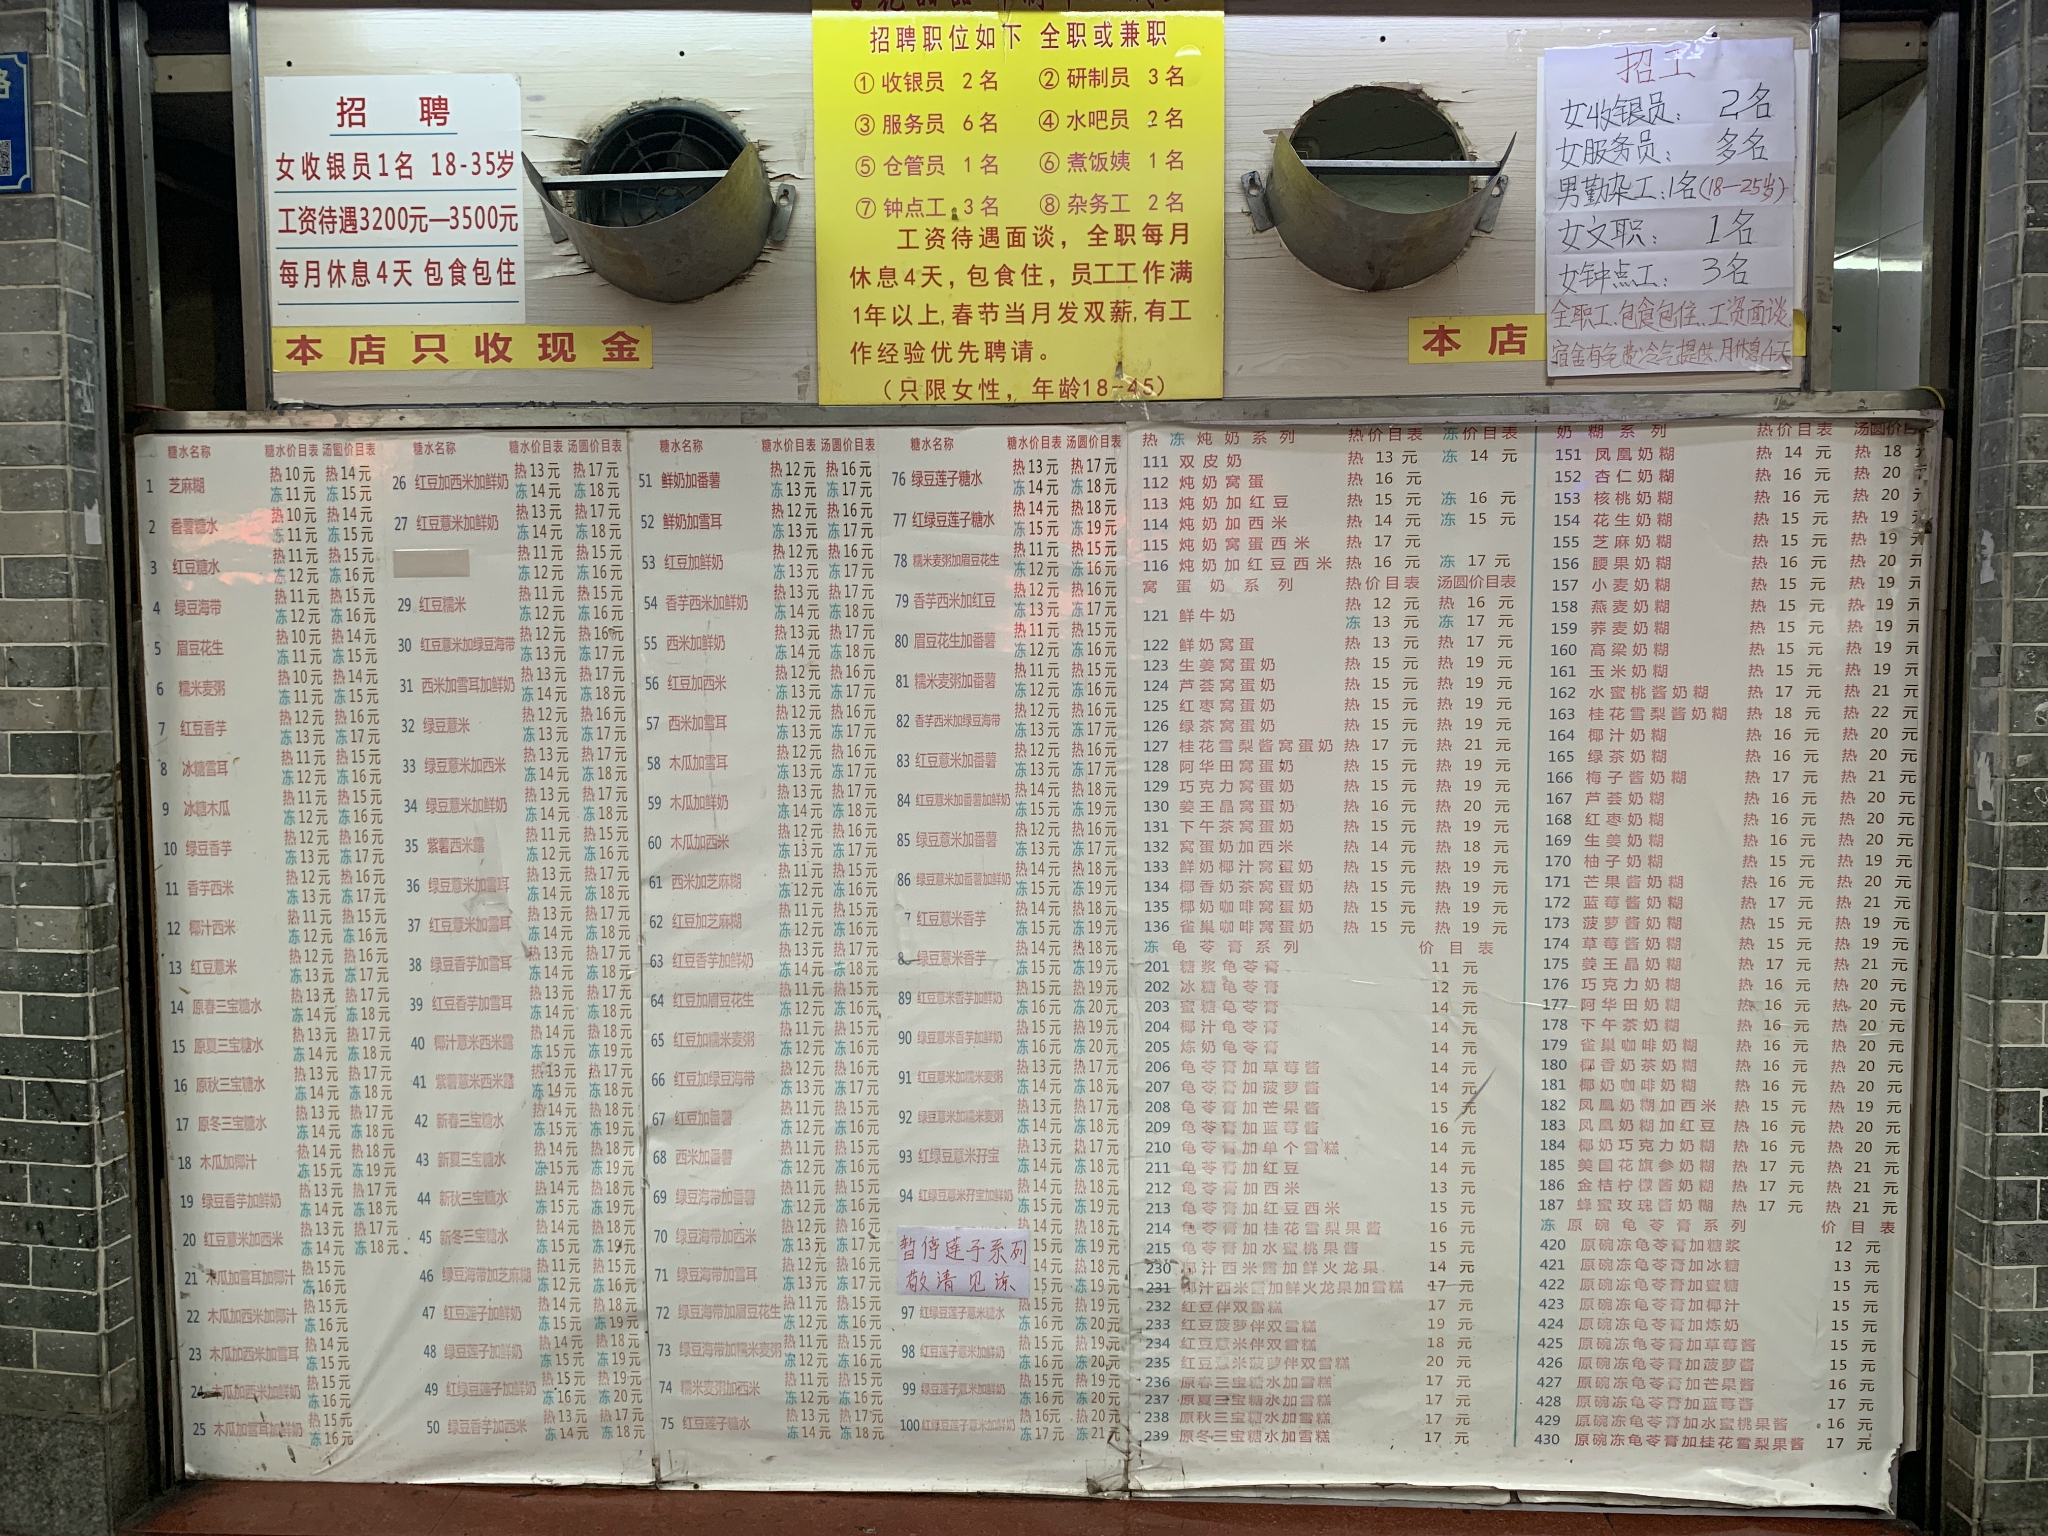 招聘
女收银员1名 18-35岁
工资待遇3200元—3500元
每月休息4天 包食包住
本店只收现金
招聘职位如下 全职或兼职
① 收银员 2名 ② 研制员 3名
③ 服务员 6名 ④ 水吧员 2名
⑤ 仓管员 1名 ⑥ 煮饭姨 1名
⑦ 钟点工 3名 ⑧ 杂务工 2名
工资待遇面谈，全职每月
休息4天，包食住，员工工作满
1年以上,春节当月发双薪,有工
作经验优先聘请。
（只限女性，年龄18-45）
本店
招工
女收银员： 2名
女服务员： 多名
男勤杂工:1名(18—25岁)
女文职： 1名
女钟点工： 3名
全职工.包食包住.工资面谈
宿舍有免费冷气提供.月休息4天
糖水名称 糖水价目表 汤圆价目表
1 芝麻糊 热10元 热14元 冻11元 冻15元
2 香薯糖水 热10元 热14元 冻11元 冻15元
3 红豆糖水 热11元 热15元 冻12元 冻16元
4 绿豆海带 热11元 热15元 冻12元 冻16元
5 眉豆花生 热10元 热14元 冻11元 冻15元
6 糯米麦粥 热10元 热14元 冻11元 冻15元
7 红豆香芋 热12元 热16元 冻13元 冻17元
8 冰糖雪耳 热11元 热15元 冻12元 冻16元
9 冰糖木瓜 热11元 热15元 冻12元 冻16元
10 绿豆香芋 热12元 热16元 冻13元 冻17元
11 香芋西米 热12元 热16元 冻13元 冻17元
12 椰汁西米 热11元 热15元 冻12元 冻16元
13 红豆薏米 热12元 热16元 冻13元 冻17元
14 原春三宝糖水 热13元 热17元 冻14元 冻18元
15 原夏三宝糖水 热13元 热17元 冻14元 冻18元
16 原秋三宝糖水 热13元 热17元 冻14元 冻18元
17 原冬三宝糖水 热13元 热17元 冻14元 冻18元
18 木瓜加椰汁 热14元 热18元 冻15元 冻19元
19 绿豆香芋加鲜奶 热13元 热17元 冻14元 冻18元
20 红豆薏米加西米 热13元 热17元 冻14元 冻18元
21 木瓜加雪耳加椰汁 热15元 冻16元
22 木瓜加西米加椰汁 热15元 冻16元
23 木瓜加西米加雪耳 热15元 冻16元
24 木瓜加西米加鲜奶 热15元 冻16元
25 木瓜加雪耳加鲜奶 热15元 冻16元
糖水名称 糖水价目表 汤圆价目表
26 红豆加西米加鲜奶 热13元 热17元 冻14元 冻18元
27 红豆薏米加鲜奶 热13元 热17元 冻14元 冻18元
热11元 热15元 冻12元 冻16元
29 红豆糯米 热11元 热15元 冻12元 冻16元
30 红豆薏米加绿豆海带 热12元 热16元 冻13元 冻17元
31 西米加雪耳加鲜奶 热13元 热17元 冻14元 冻18元
32 绿豆薏米 热12元 热16元 冻13元 冻17元
33 绿豆薏米加西米 热13元 热17元 冻14元 冻18元
34 绿豆薏米加鲜奶 热13元 热17元 冻14元 冻18元
35 紫薯西米露 热11元 热15元 冻12元 冻16元
36 绿豆薏米加雪耳 热13元 热17元 冻14元 冻18元
37 红豆薏米加雪耳 热13元 热17元 冻14元 冻18元
38 绿豆香芋加雪耳 热13元 热17元 冻14元 冻18元
39 红豆香芋加雪耳 热13元 热17元 冻14元 冻18元
40 椰汁薏米西米露 热14元 热18元 冻15元 冻19元
41 紫薯薏米西米露
42 新春三宝糖水 热14元 热18元 冻15元 冻19元
43 新夏三宝糖水 热14元 热18元 冻15元 冻19元
44 新秋三宝糖水 热14元 热18元 冻15元 冻19元
45 新冬三宝糖水 热14元 热18元 冻15元 冻19元
46 绿豆海带加芝麻糊
47 红豆莲子加鲜奶 热14元 热18元 冻15元 冻19元
48 绿豆莲子加鲜奶 热14元 热18元 冻15元 冻19元
49 红绿豆莲子加鲜奶 热15元 热19元 冻16元 冻20元
50 绿豆香芋加西米 热13元 热17元 冻14元 冻18元
糖水名称 糖水价目表 汤圆价目表
51 鲜奶加番薯 热12元 热16元 冻13元 冻17元
52 鲜奶加雪耳 热12元 热16元 冻13元 冻17元
53 红豆加鲜奶 热12元 热16元 冻13元 冻17元
54 香芋西米加鲜奶 热13元 热17元 冻14元 冻18元
55 西米加鲜奶 热13元 热17元 冻14元 冻18元
56 红豆加西米 热12元 热16元 冻13元 冻17元
57 西米加雪耳 热12元 热16元 冻13元 冻17元
58 木瓜加雪耳 热12元 热16元 冻13元 冻17元
59 木瓜加鲜奶 热13元 热17元 冻14元 冻18元
60 木瓜加西米 热12元 热16元 冻13元 冻17元
61 西米加芝麻糊 热11元 热15元 冻12元 冻16元
62 红豆加芝麻糊 热11元 热15元 冻12元 冻16元
63 红豆香芋加鲜奶 热13元 热17元 冻14元 冻18元
64 红豆加眉豆花生 热11元 热15元 冻12元 冻16元
65 红豆加糯米麦粥 热11元 热15元 冻12元 冻16元
66 红豆加绿豆海带 热11元 热15元 冻12元 冻16元
67 红豆加番薯 热11元 热15元 冻12元 冻16元
68 西米加番薯 热11元 热15元 冻12元 冻16元
69 绿豆海带加番薯 热11元 热15元 冻12元 冻16元
70 绿豆海带加西米 热12元 热16元 冻13元 冻17元
71 绿豆海带加雪耳 热12元 热16元 冻13元 冻17元
72 绿豆海带加眉豆花生 热11元 热15元 冻12元 冻16元
73 绿豆海带加糯米麦粥 热11元 热15元 冻12元 冻16元
74 糯米麦粥加西米 热12元 热16元 冻13元 冻17元
75 红豆莲子糖水 热13元 热17元 冻14元 冻18元
糖水名称 糖水价目表 汤圆价目表
76 绿豆莲子糖水 热13元 热17元 冻14元 冻18元
77 红绿豆莲子糖水 热14元 热18元 冻15元 冻19元
78 糯米麦粥加眉豆花生 热11元 热15元 冻12元 冻16元
79 香芋西米加红豆 热12元 热16元 冻13元 冻17元
80 眉豆花生加番薯 热11元 热15元 冻12元 冻16元
81 糯米麦粥加番薯 热11元 热15元 冻12元 冻16元
82 香芋西米加绿豆海带 热12元 热16元 冻13元 冻17元
83 红豆薏米加番薯 热12元 热16元 冻13元 冻17元
84 红豆薏米加番薯加鲜奶 热14元 热18元 冻15元 冻19元
85 绿豆薏米加番薯 热12元 热16元 冻13元 冻17元
86 绿豆薏米加番薯加鲜奶 热14元 热18元 冻15元 冻19元
7 红豆薏米香芋 热14元 热18元 冻15元 冻19元
8 绿豆薏米香芋 热14元 热18元 冻15元 冻19元
89 红豆薏米香芋加鲜奶 热15元 热19元 冻16元 冻20元
90 绿豆薏米香芋加鲜奶 热15元 热19元 冻16元 冻20元
91 红豆薏米加糯米麦粥 热13元 热17元 冻14元 冻18元
92 绿豆薏米加糯米麦粥 热13元 热17元 冻14元 冻18元
93 红绿豆薏米孖宝 热13元 热17元 冻14元 冻18元
94 红绿豆薏米孖宝加鲜奶 热14元 热18元 冻15元 冻19元
暂停莲子系列
敬请见谅
97 红绿豆莲子薏米糖水 热15元 热19元 冻16元 冻20元
98 红豆莲子薏米加鲜奶 热15元 热19元 冻16元 冻20元
99 绿豆莲子薏米加鲜奶 热15元 热19元 冻16元 冻20元
100 红绿豆莲子薏米加鲜奶 热16元 热20元 冻17元 冻21元
热冻炖奶系列 热价目表 冻价目表
111 双皮奶 热 13 元 冻 14 元
112 炖奶窝蛋 热 16 元
113 炖奶加红豆 热 15 元 冻 16 元
114 炖奶加西米 热 14 元 冻 15 元
115 炖奶窝蛋西米 热 17 元
116 炖奶加红豆西米 热 16 元 冻 17 元
窝蛋奶系列 热价目表 汤圆价目表
121 鲜牛奶 热 12 元 热 16 元 冻 13 元 冻 17 元
122 鲜奶窝蛋 热 13 元 热 17 元
123 生姜窝蛋奶 热 15 元 热 19 元
124 芦荟窝蛋奶 热 15 元 热 19 元
125 红枣窝蛋奶 热 15 元 热 19 元
126 绿茶窝蛋奶 热 15 元 热 19 元
127 桂花雪梨酱窝蛋奶 热 17 元 热 21 元
128 阿华田窝蛋奶 热 15 元 热 19 元
129 巧克力窝蛋奶 热 15 元 热 19 元
130 姜王晶窝蛋奶 热 16 元 热 20 元
131 下午茶窝蛋奶 热 15 元 热 19 元
132 窝蛋奶加西米 热 14 元 热 18 元
133 鲜奶椰汁窝蛋奶 热 15 元 热 19 元
134 椰香奶茶窝蛋奶 热 15 元 热 19 元
135 椰奶咖啡窝蛋奶 热 15 元 热 19 元
136 雀巢咖啡窝蛋奶 热 15 元 热 19 元
冻龟苓膏系列 价目表
201 糖浆龟苓膏 11 元
202 冰糖龟苓膏 12 元
203 蜜糖龟苓膏 14 元
204 椰汁龟苓膏 14 元
205 炼奶龟苓膏 14 元
206 龟苓膏加草莓酱 14 元
207 龟苓膏加菠萝酱 14 元
208 龟苓膏加芒果酱 15 元
209 龟苓膏加蓝莓酱 16 元
210 龟苓膏加单个雪糕 14 元
211 龟苓膏加红豆 14 元
212 龟苓膏加西米 13 元
213 龟苓膏加红豆西米 15 元
214 龟苓膏加桂花雪梨果酱 16 元
215 龟苓膏加水蜜桃果酱 15 元
230 椰汁西米露加鲜火龙果 14 元
231 椰汁西米露加鲜火龙果加雪糕 17 元
232 红豆伴双雪糕 17 元
233 红豆菠萝伴双雪糕 19 元
234 红豆薏米伴双雪糕 18 元
235 红豆薏米菠萝伴双雪糕 20 元
236 原春三宝糖水加雪糕 17 元
237 原夏三宝糖水加雪糕 17 元
238 原秋三宝糖水加雪糕 17 元
239 原冬三宝糖水加雪糕 17 元
奶糊系列 热价目表 汤圆价目
151 凤凰奶糊 热 14 元 热 18
152 杏仁奶糊 热 16 元 热 20 元
153 核桃奶糊 热 16 元 热 20 元
154 花生奶糊 热 15 元 热 19 元
155 芝麻奶糊 热 15 元 热 19 元
156 腰果奶糊 热 16 元 热 20 元
157 小麦奶糊 热 15 元 热 19 元
158 燕麦奶糊 热 15 元 热 19 元
159 荞麦奶糊 热 15 元 热 19 元
160 高粱奶糊 热 15 元 热 19 元
161 玉米奶糊 热 15 元 热 19 元
162 水蜜桃酱奶糊 热 17 元 热 21 元
163 桂花雪梨酱奶糊 热 18 元 热 22 元
164 椰汁奶糊 热 16 元 热 20 元
165 绿茶奶糊 热 16 元 热 20 元
166 梅子酱奶糊 热 17 元 热 21 元
167 芦荟奶糊 热 16 元 热 20 元
168 红枣奶糊 热 16 元 热 20 元
169 生姜奶糊 热 16 元 热 20 元
170 柚子奶糊 热 15 元 热 19 元
171 芒果酱奶糊 热 16 元 热 20 元
172 蓝莓酱奶糊 热 17 元 热 21 元
173 菠萝酱奶糊 热 15 元 热 19 元
174 草莓酱奶糊 热 15 元 热 19 元
175 姜王晶奶糊 热 17 元 热 21 元
176 巧克力奶糊 热 16 元 热 20 元
177 阿华田奶糊 热 16 元 热 20 元
178 下午茶奶糊 热 16 元 热 20 元
179 雀巢咖啡奶糊 热 16 元 热 20 元
180 椰香奶茶奶糊 热 16 元 热 20 元
181 椰奶咖啡奶糊 热 16 元 热 20 元
182 凤凰奶糊加西米 热 15 元 热 19 元
183 凤凰奶糊加红豆 热 16 元 热 20 元
184 椰奶巧克力奶糊 热 16 元 热 20 元
185 美国花旗参奶糊 热 17 元 热 21 元
186 金桔柠檬酱奶糊 热 17 元 热 21 元
187 蜂蜜玫瑰酱奶糊 热 17 元 热 21 元
冻原碗龟苓膏系列 价目表
420 原碗冻龟苓膏加糖浆 12 元
421 原碗冻龟苓膏加冰糖 13 元
422 原碗冻龟苓膏加蜜糖 15 元
423 原碗冻龟苓膏加椰汁 15 元
424 原碗冻龟苓膏加炼奶 15 元
425 原碗冻龟苓膏加草莓酱 15 元
426 原碗冻龟苓膏加菠萝酱 15 元
427 原碗冻龟苓膏加芒果酱 16 元
428 原碗冻龟苓膏加蓝莓酱 17 元
429 原碗冻龟苓膏加水蜜桃果酱 16 元
430 原碗冻龟苓膏加桂花雪梨果酱 17 元